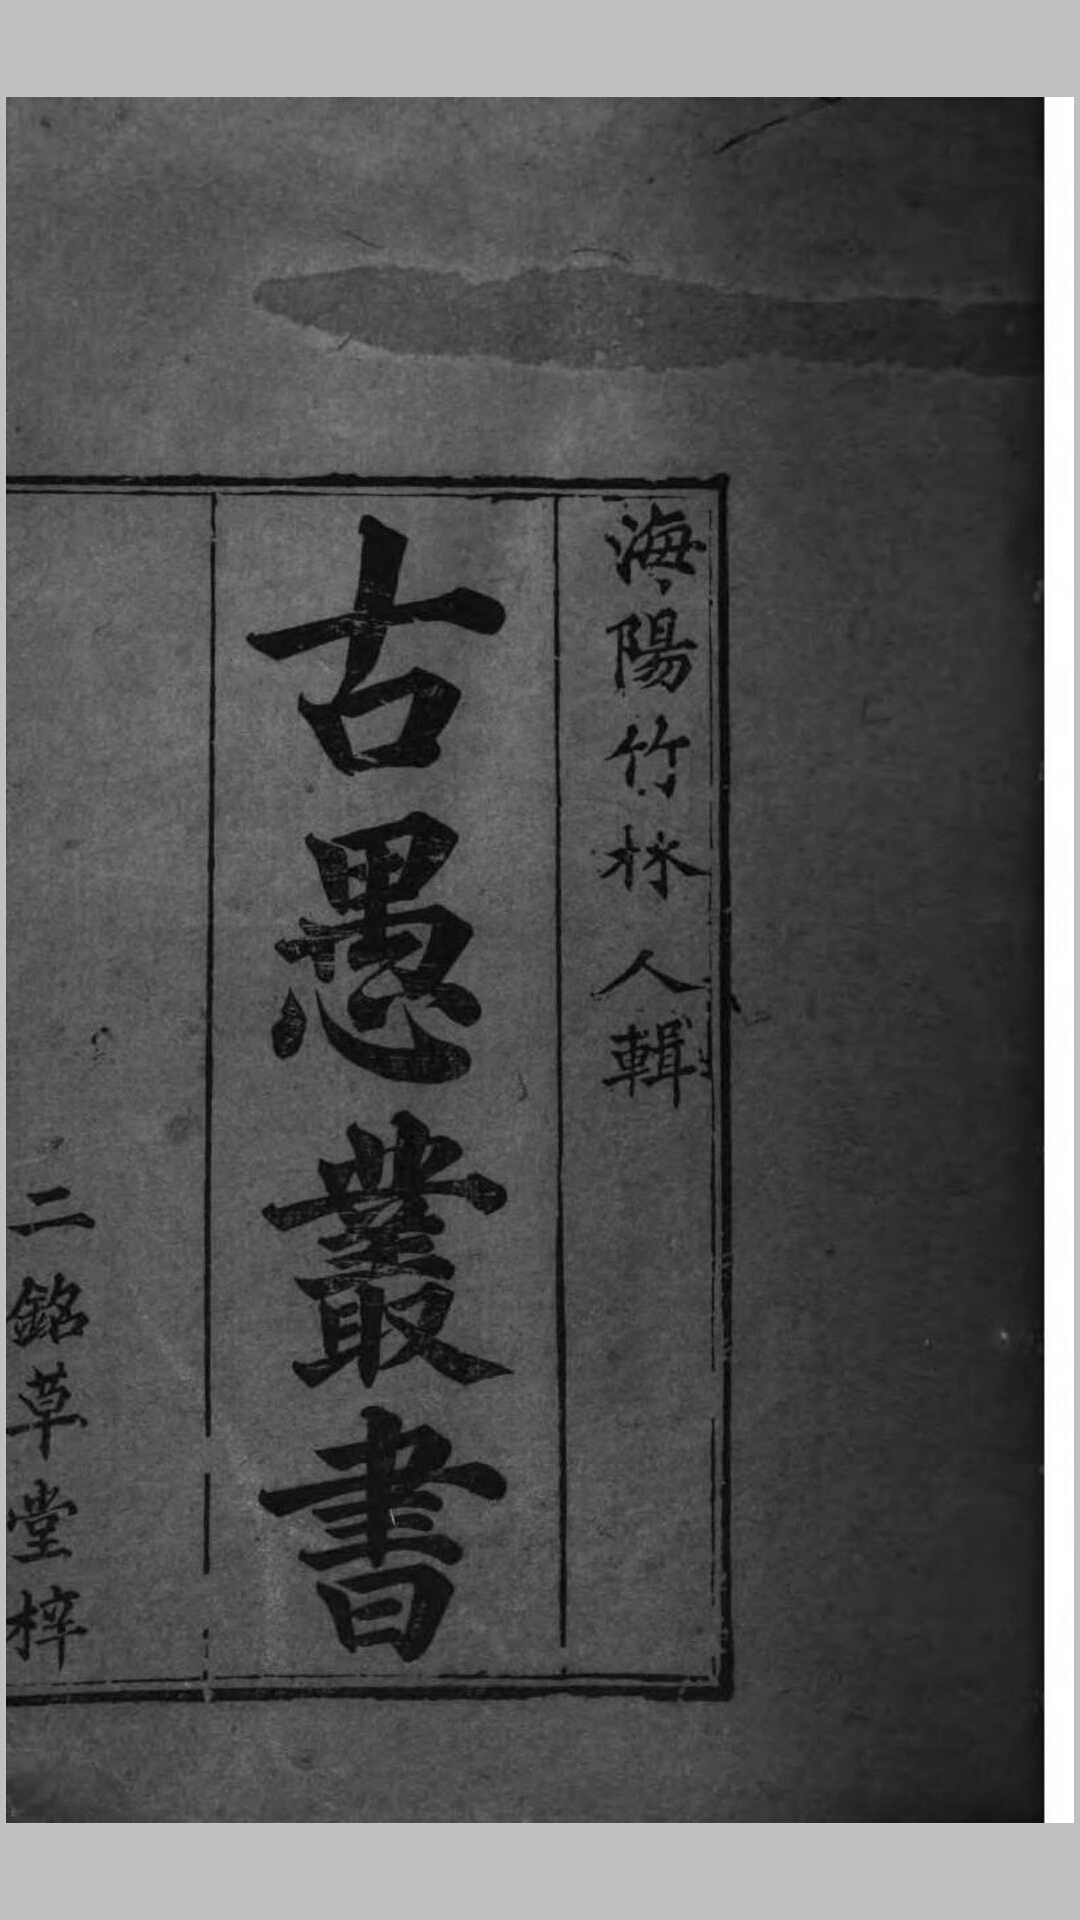 海陽竹林人輯
古愚叢書
二銘草堂梓